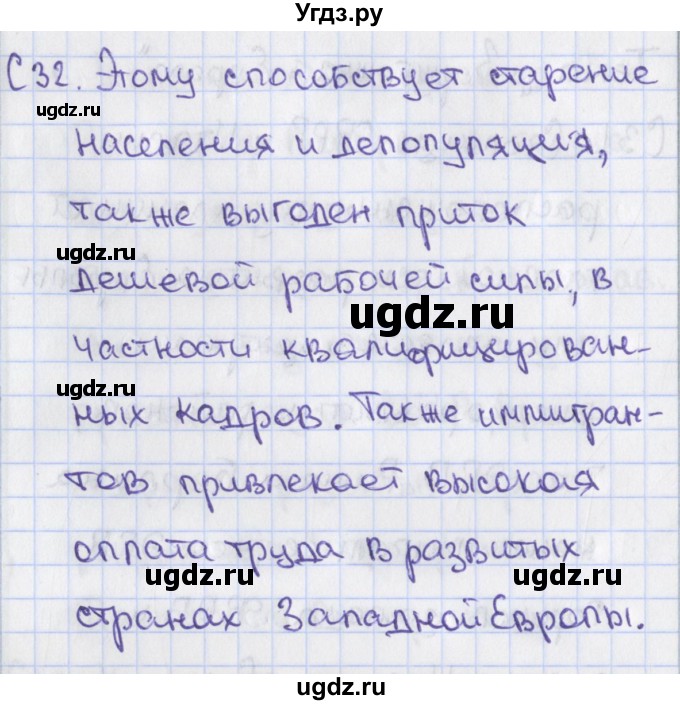 Угдз.ру
С32. Этому способствует старение
ugdz.ru
населения и депопуляция,
также выгоден приток
ugdz.ru
дешевой рабочей силы, в
ugdz.ru
частности квалифицирован-
ugdz.ru
ных кадров. Также иммигран-
тов привлекает высокая
оплата труда в развитых
ugdz.ru
ugdz.ru
странах Западной Европы.
ugdz.ru